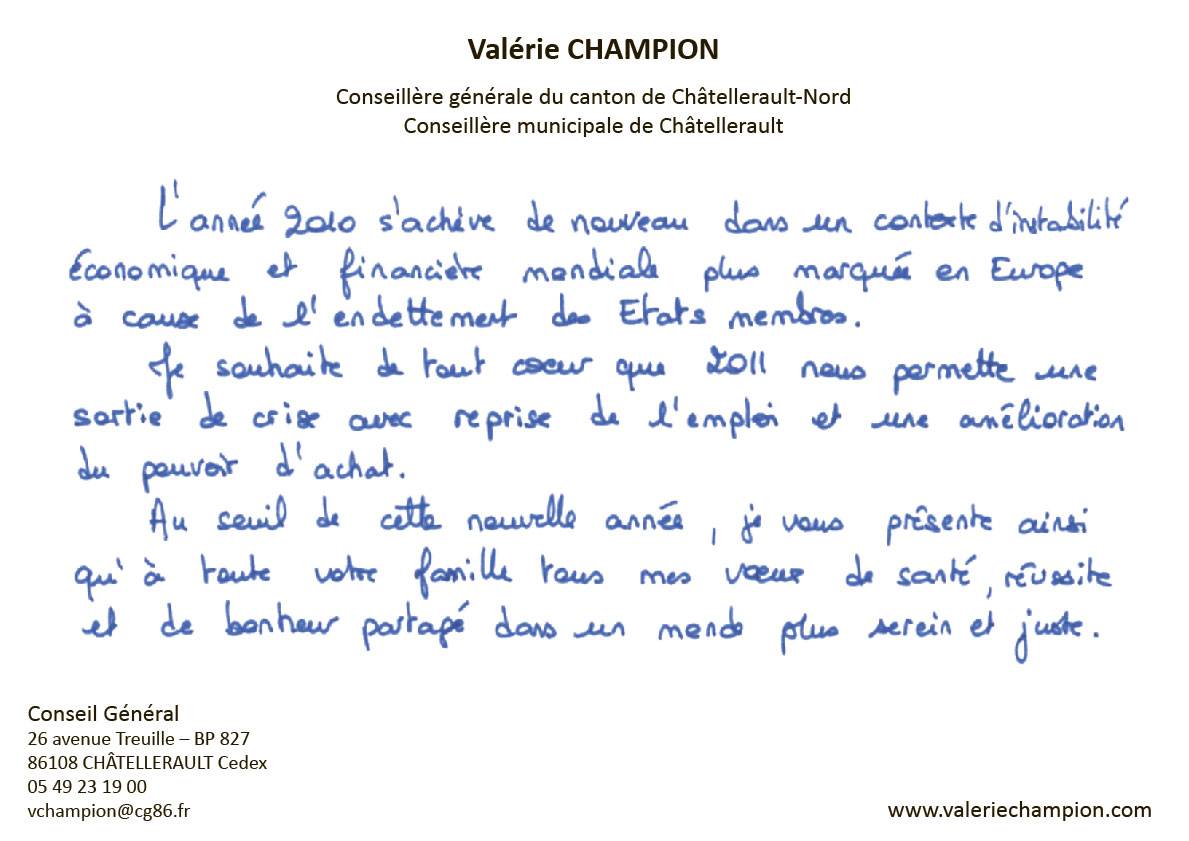 Valérie CHAMPION
Conseillère générale du canton de Châtellerault-Nord
Conseillère municipale de Châtellerault
L'année 2010 s'achève de nouveau dans un contexte d'instabilité
économique et financière mondiale plus marquée en Europe
à cause de l'endettement des Etats membres.
Je souhaite de tout coeur que 2011 nous permette une
sortie de crise avec reprise de l'emploi et une amélioration
du pouvoir d'achat.
Au seuil de cette nouvelle année, je vous présente ainsi
qu'à toute votre famille tous mes voeux de santé, réussite
et de bonheur partagé dans un monde plus serein et juste.
Conseil Général
26 avenue Treuille – BP 827
86108 CHÂTELLERAULT Cedex
05 49 23 19 00
vchampion@cg86.fr
www.valeriechampion.com